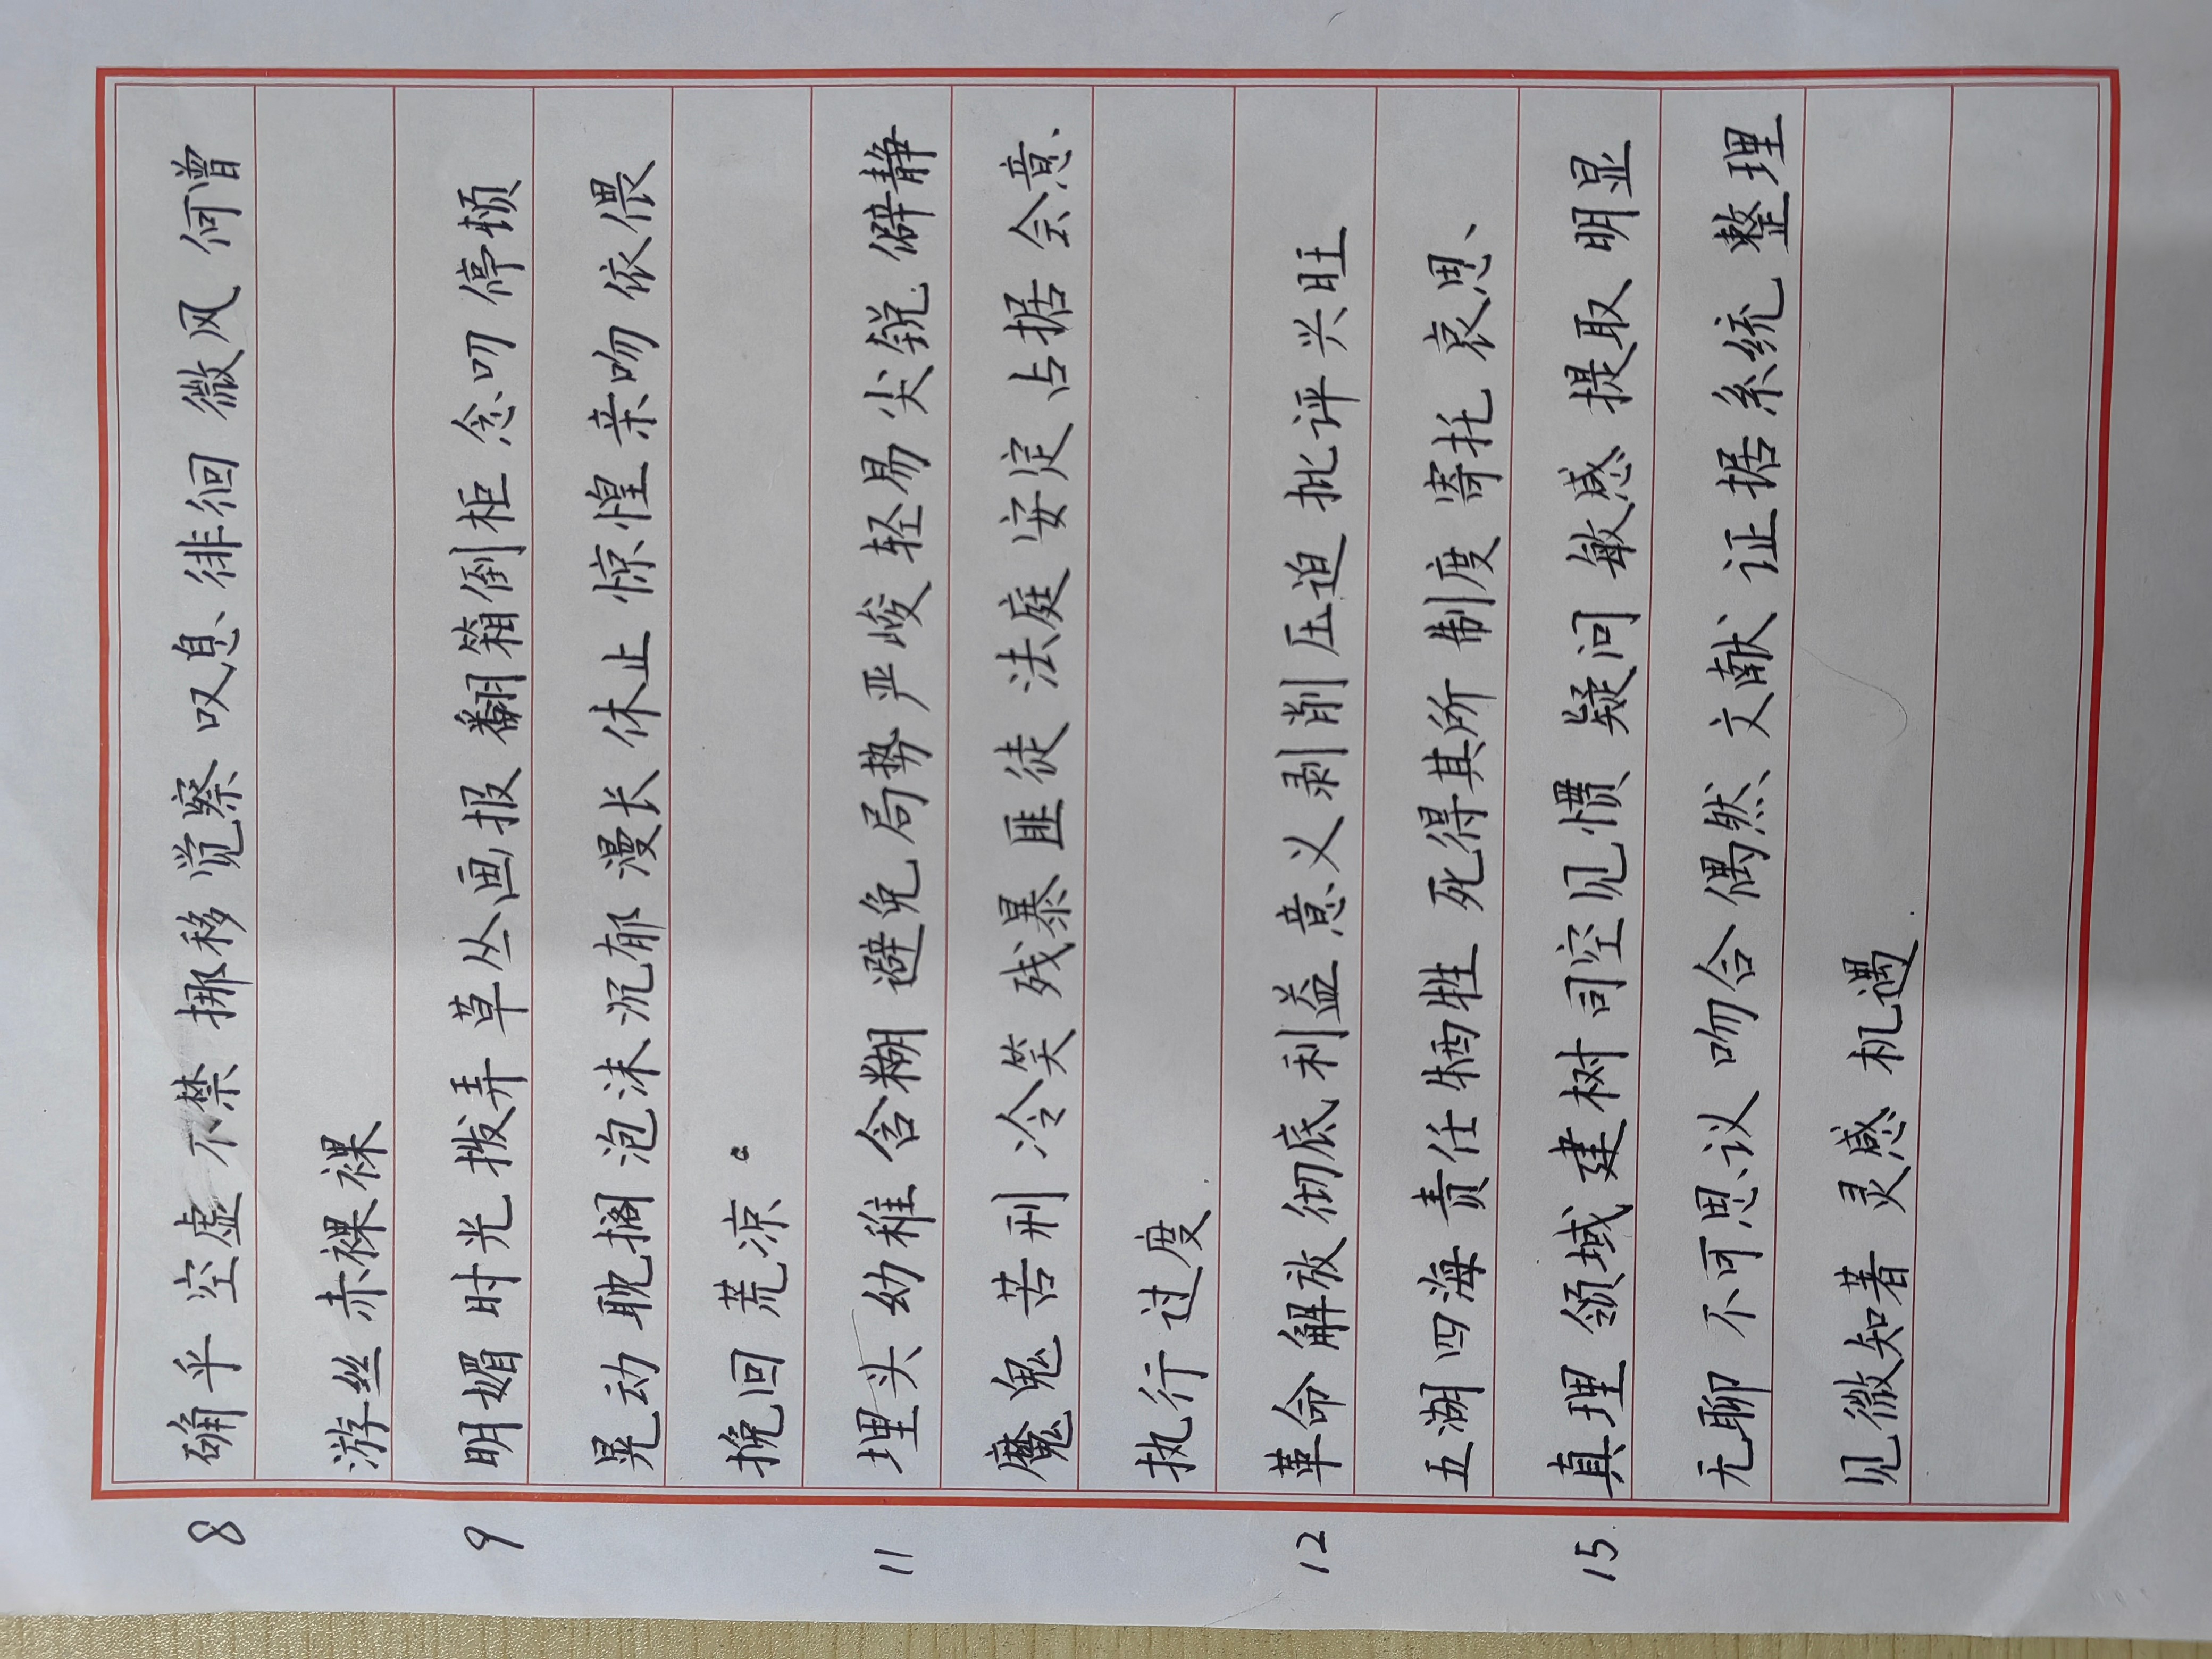 8 确乎 空虚 不禁 挪移 觉察 叹息 徘徊 微风 何曾
游丝 赤裸裸
9 明媚 时光 拨弄 草丛 画报 翻箱倒柜 念叨 停顿
晃动 耽搁 泡沫 沉郁 漫长 休止 惊惶 亲吻 依偎
挽回 荒凉。
11 埋头 幼稚 含糊 避免 局势 严峻 轻易 尖锐 僻静
魔鬼 苦刑 冷笑 残暴 匪徒 法庭 安定 占据 会意
执行 过度.
12 革命 解放 彻底 利益 意义 剥削 压迫 批评 兴旺
五湖四海 责任 牺牲 死得其所 制度 寄托 哀思
15. 真理 领域 建树 司空见惯 疑问 敏感 提取 明显
无聊 不可思议 吻合 偶然 文献 证据 系统 整理
见微知著 灵感 机遇.